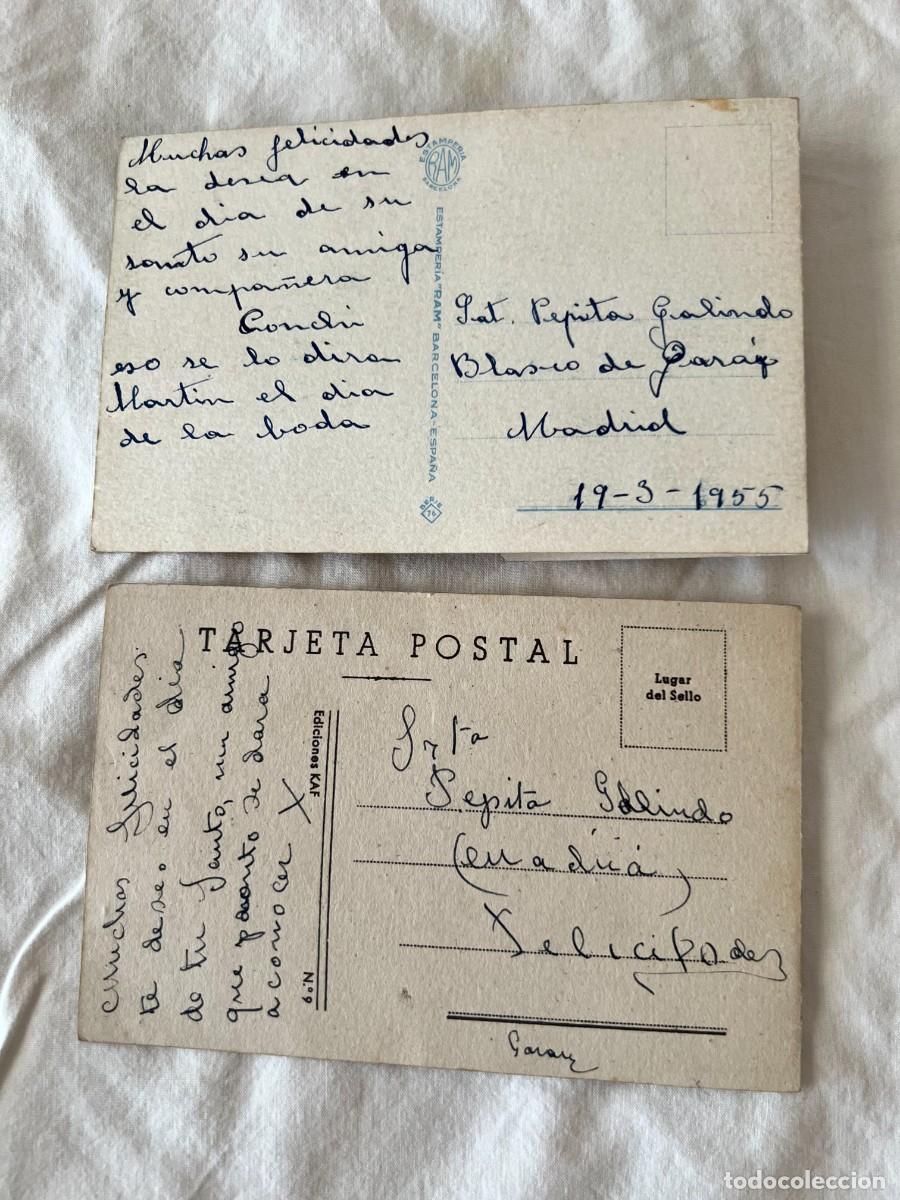 Muchas felicidades
la desea en
el dia de su
santo su amiga
y compañera
Conchi
eso se lo dira
Martin el dia
de la boda
ESTAMPERIA
RAM
BARCELONA
ESTAMPERIA "RAM" BARCELONA - ESPAÑA
SERIE
76
Pepita Galindo
Blasco de Garáy
Madrid
19-3-1955
TARJETA POSTAL
Lugar
del Sello
Muchas felicidades
te deseo en el dia
de tu Santo, un amigo
que pronto se dara
a conocer X
Ediciones KAF
N.º 9
Srta
Pepita Galindo
Felicidades
Garay
todocoleccion